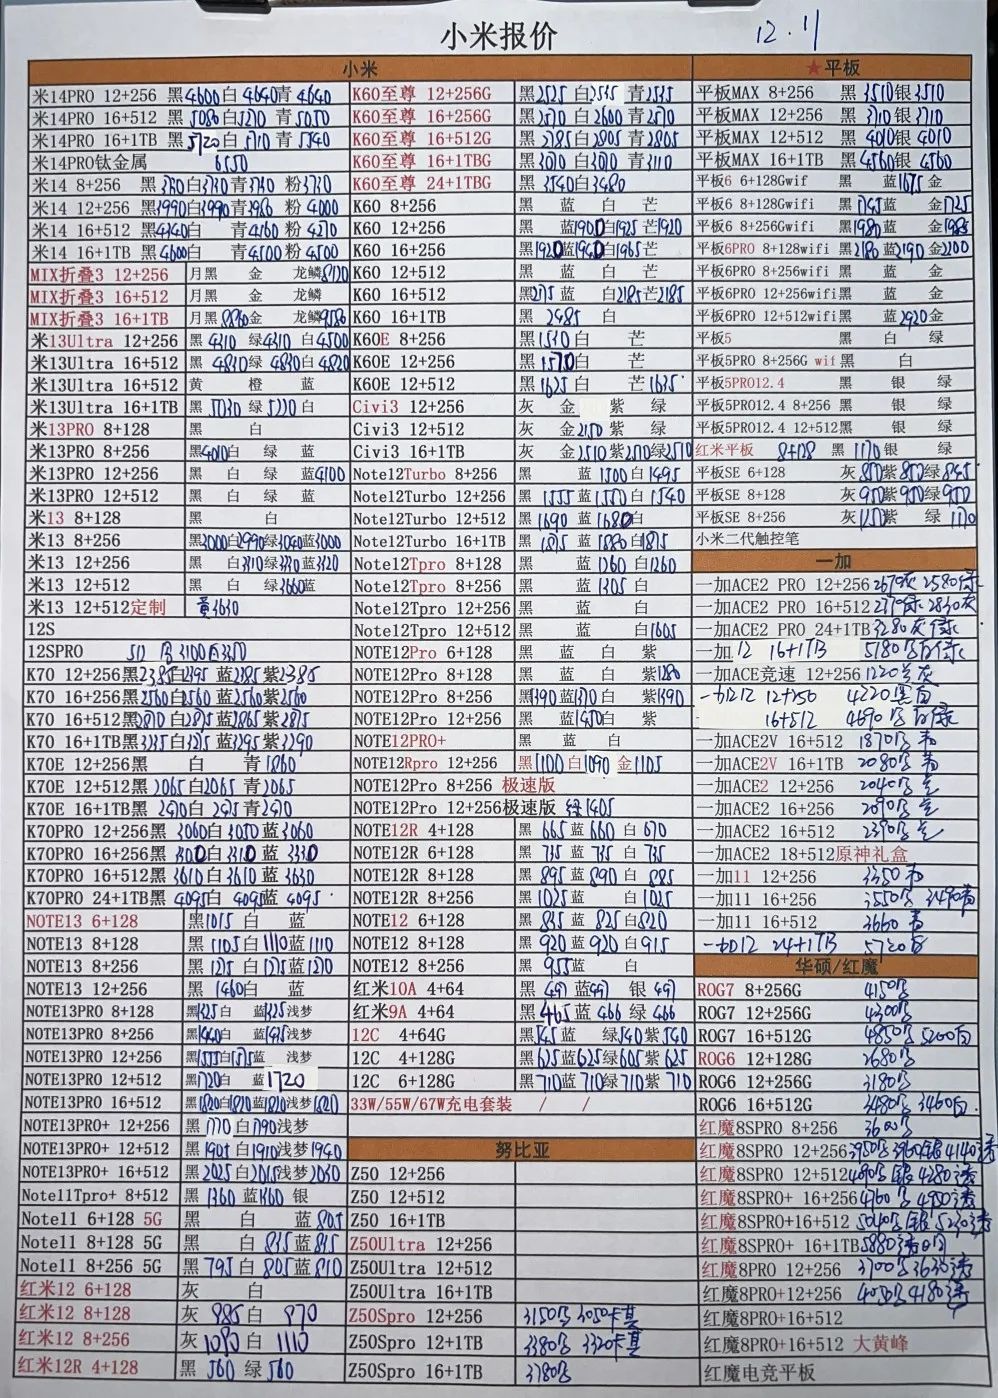 小米报价
12.11
小米
米14PRO 12+256 黑4600白4640青4640
米14PRO 16+512 黑5080白5270青5050
米14PRO 16+1TB 黑5720白5710青5540
米14PRO钛金属 6550
米14 8+256 黑 白3730青3740 粉3730
米14 12+256 黑3990白3990青3980 粉 4000
米14 16+512 黑4240白 青4260 粉 4270
米14 16+1TB 黑4600白 青4500粉4500
MIX折叠3 12+256 月黑 金 龙鳞8120
MIX折叠3 16+512 月黑 金 龙鳞
MIX折叠3 16+1TB 月黑 8860金 龙鳞
米13Ultra 12+256 黑 4310 绿4310 白4500
米13Ultra 16+512 黑 4830绿 4830白4820
米13Ultra 16+512 黄 橙 蓝
米13Ultra 16+1TB 黑 5030 绿5220 白
米13PRO 8+128 黑 白
米13PRO 8+256 黑4010白 绿 蓝
米13PRO 12+256 黑 白 绿 蓝4100
米13PRO 12+512 黑 白 绿 蓝
米13 8+128 黑 白
米13 8+256 黑3000白2990绿3040蓝3000
米13 12+256 黑 白3310绿3330蓝3320
米13 12+512 黑 白 绿3660蓝
米13 12+512定制 黄3630
12S
12SPRO
K70 12+256黑2385白2395 蓝2385紫2385
K70 16+256黑2560白2560 蓝2560紫2560
K70 16+512黑2870白2875 蓝2865紫2875
K70 16+1TB黑3235白3275 蓝3295紫3290
K70E 12+256黑 白 青1860
K70E 12+512黑 2065白2065 青2065
K70E 16+1TB黑 2490白 2495 青2490
K70PRO 12+256黑 3060白3050 蓝3060
K70PRO 16+256黑 白3310 蓝 3330
K70PRO 16+512黑 3610白3610 蓝 3630
K70PRO 24+1TB黑 4095白 4095蓝 4095
NOTE13 6+128 黑1015 白 蓝
NOTE13 8+128 黑 1105白1110蓝1110
NOTE13 8+256 黑 1275 白1275蓝1270
NOTE13 12+256 黑 1460白 蓝
NOTE13PRO 8+128 黑1325白 蓝1325浅梦
NOTE13PRO 8+256 黑1440白 蓝1495浅梦
NOTE13PRO 12+256 黑1575白1575蓝 浅梦
NOTE13PRO 12+512 黑1720白 蓝1720
NOTE13PRO 16+512 黑1820白1820蓝1820浅梦1820
NOTE13PRO+ 12+256 黑 1770 白1790浅梦
NOTE13PRO+ 12+512 黑 1905 白1910浅梦1940
NOTE13PRO+ 16+512 黑 2025 白2015浅梦2030
Note11Tpro+ 8+512 黑 1360 蓝1360 银
Note11 6+128 5G 黑 白 蓝805
Note11 8+128 5G 黑 白 835蓝845
Note11 8+256 5G 黑 795白 805蓝810
红米12 6+128 灰 白
红米12 8+128 灰 985白 970
红米12 8+256 灰1090白 1110
红米12R 4+128 黑 560 绿560
K60至尊 12+256G 黑2525 白2535 青2535
K60至尊 16+256G 黑2570 白2600青2570
K60至尊 16+512G 黑2785白2805 青2805
K60至尊 16+1TBG 黑3070 白3070 青3110
K60至尊 24+1TBG 黑 3540白3480
K60 8+256 黑 蓝 白 芒
K60 12+256 黑 蓝1900白1925 芒1920
K60 16+256 黑1920蓝1940白1965芒
K60 12+512 黑 蓝 白 芒
K60 16+512 黑2175 蓝 白2185芒2185
K60 16+1TB 黑 2485 白
K60E 8+256 黑1530白 芒
K60E 12+256 黑1570白 芒
K60E 12+512 黑1625白 芒1635
Civi3 12+256 灰 金 紫 绿
Civi3 12+512 灰 金2150 紫 绿
Civi3 16+1TB 灰 金2510紫2510绿2510
Note12Turbo 8+256 黑 蓝 1500 白1495
Note12Turbo 12+256 黑 1555 蓝1550白1540
Note12Turbo 12+512 黑 1690 蓝 1680白
Note12Turbo 16+1TB 黑 1875 蓝1880白1875
Note12Tpro 8+128 黑 蓝 1260 白1260
Note12Tpro 8+256 黑 蓝 1305 白
Note12Tpro 12+256 黑 蓝 白
Note12Tpro 12+512 黑 蓝 白1605
NOTE12Pro 6+128 黑 蓝 白 紫
NOTE12Pro 8+256 黑 蓝 白 紫1280
NOTE12Pro 12+256 黑1390蓝1370白 紫1390
NOTE12Pro 12+256 黑 蓝1450白 紫
NOTE12PRO+ 黑 蓝 白
NOTE12Rpro 12+256 黑1100白1090 金1105
NOTE12Pro 8+256 极速版
NOTE12Pro 12+256极速版 绿1405
NOTE12R 4+128 黑 665 蓝 660 白 670
NOTE12R 6+128 黑 735 蓝 735 白 735
NOTE12R 8+128 黑 895 蓝890 白 885
NOTE12R 8+256 黑 1025蓝 白1025
NOTE12 6+128 黑 835 蓝 825 白820
NOTE12 8+128 黑 920 蓝 920 白915
NOTE12 8+256 黑 955蓝 白
红米10A 4+64 黑 491 蓝491 银 491
红米9A 4+64 黑 465 蓝 466 绿 466
12C 4+64G 黑545 蓝 绿540紫540
12C 4+128G 黑625蓝625绿605紫 625
12C 6+128G 黑710蓝 710绿710紫 710
33W/55W/67W充电套装 / /
努比亚
Z50 12+256
Z50 12+512
Z50 16+1TB
Z50Ultra 12+256
Z50Ultra 12+512
Z50Ultra 16+1TB
Z50Spro 12+256 3150 3050
Z50Spro 12+1TB 3380 3320
Z50Spro 16+1TB 3780
★平板
平板MAX 8+256 黑 3510银3510
平板MAX 12+256 黑 3710银3710
平板MAX 12+512 黑 4010银 4010
平板MAX 16+1TB 黑4560银 4560
平板6 6+128Gwif 黑 蓝1675 金
平板6 8+128Gwifi 黑 1745蓝 金1725
平板6 8+256Gwifi 黑1980蓝 金1985
平板6PRO 8+128wifi 黑2180 蓝2190 金2200
平板6PRO 8+256wifi 黑 蓝 金
平板6PRO 12+256wifi黑 蓝 金
平板6PRO 12+512wifi黑 蓝2920金
平板5 黑 白 绿
平板5PRO 8+256G wif 黑 白
平板5PRO12.4 黑 银 绿
平板5PRO12.4 8+256 黑 银 绿
平板5PRO12.4 12+512黑 银 绿
红米平板 8+128 黑 1170银 绿
平板SE 6+128 灰850紫850绿845
平板SE 8+128 灰 950紫950绿950
平板SE 8+256 灰 紫 绿 1170
小米二代触控笔
一加
一加ACE2 PRO 12+256 2579灰 2580绿
一加ACE2 PRO 16+512 绿 2830灰
一加ACE2 PRO 24+1TB 3280灰绿
一加12 16+1TB 5180
一加ACE竞速 12+256 1220 灰
一加12 12+256 4220黑白
16+512 4690
一加ACE2V 16+512 1870
一加ACE2V 16+1TB 2080
一加ACE2 12+256 2040
一加ACE2 16+256 2090
一加ACE2 16+512 2390
一加ACE2 18+512原神礼盒
一加11 12+256 3350
一加11 16+256 3550 3490
一加11 16+512 3660
一加12 24+1TB 5720白
华硕/红魔
ROG7 8+256G 4150
ROG7 12+256G 4300
ROG7 16+512G 4850 5200白
ROG6 12+128G 2680
ROG6 12+256G 3180
ROG6 16+512G 3480 3460白
红魔8SPRO 8+256 3600
红魔8SPRO 12+256 3950 3960银 4140透
红魔8SPRO 12+512 4090 银 4280透
红魔8SPRO+ 16+256 4760 4750透
红魔8SPRO+16+512 5040 银 5230透
红魔8SPRO+ 16+1TB 5880透
红魔8PRO 12+256 3700 3630透
红魔8PRO+12+256 4050 4180透
红魔8PRO+16+512
红魔8PRO+16+512 大黄峰
红魔电竞平板